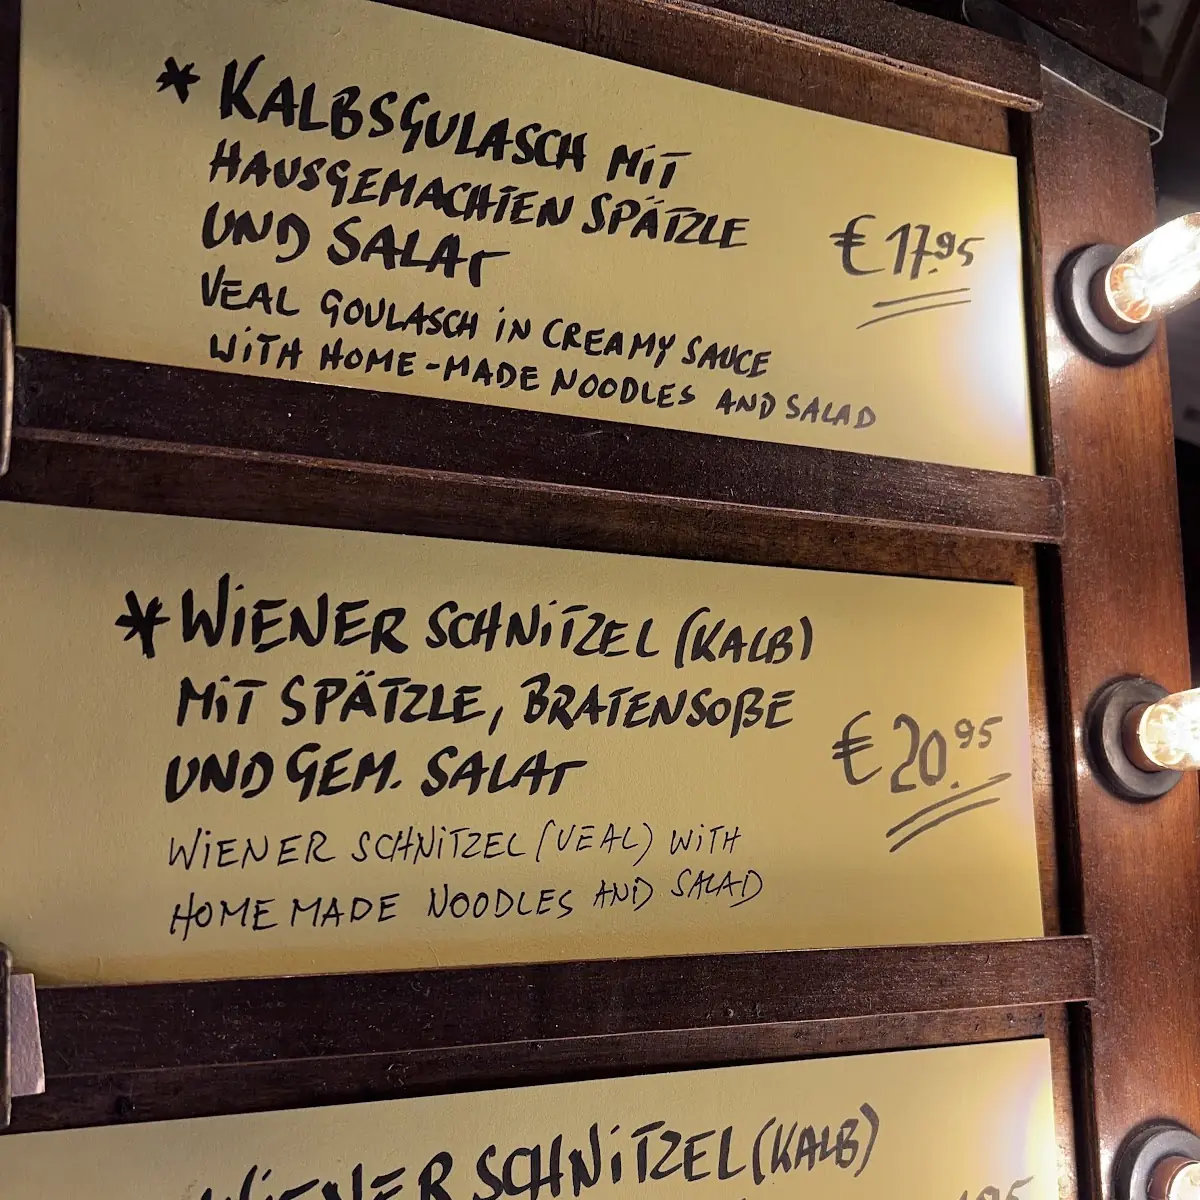 * KALBSGULASCH MIT
HAUSGEMACHTEN SPÄTZLE
UND SALAT
€ 17.95
VEAL GOULASCH IN CREAMY SAUCE
WITH HOME-MADE NOODLES AND SALAD
* WIENER SCHNITZEL (KALB)
MIT SPÄTZLE, BRATENSOßE
UND GEM. SALAT
€ 20.95
WIENER SCHNITZEL (VEAL) WITH
HOME MADE NOODLES AND SALAD
WIENER SCHNITZEL (KALB)